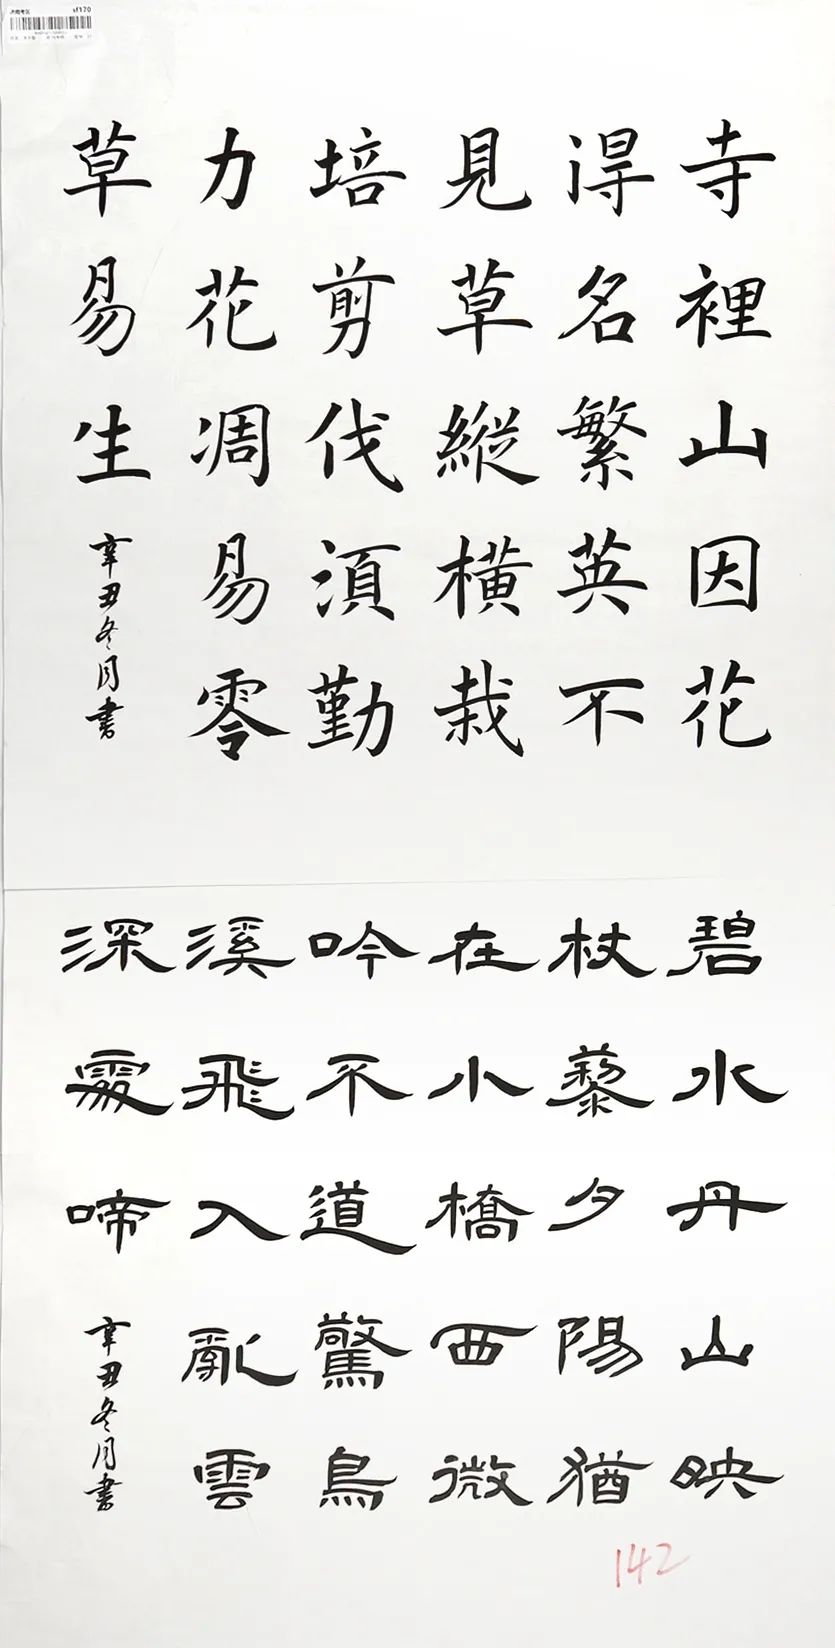 济南考区 sf120
寺裡山因花
淂名繁英不
見草縱橫栽
培剪伐湏勤
力花凋易零
草易生
辛丑冬月書
碧水丹山映
杖藜夕陽猶
在小橋西微
吟不道驚鳥
溪飛入亂雲
深處啼
辛丑冬月書
142